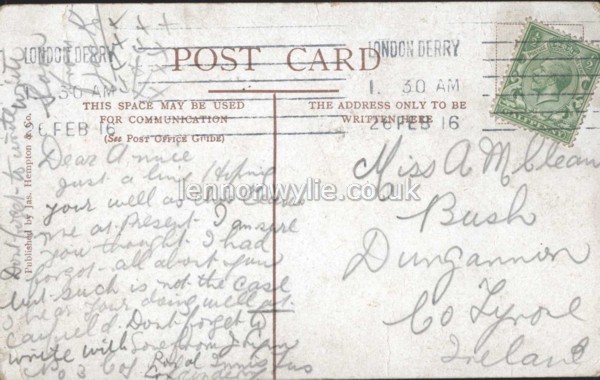 LONDON DERRY
1. 30 AM
26 FEB 16
LONDON DERRY
1. 30 AM
26 FEB 16
POST CARD
THIS SPACE MAY BE USED
FOR COMMUNICATION
(See Post Office Guide)
THE ADDRESS ONLY TO BE
WRITTEN HERE
Published by Jas. Hempton & Co.
Dear Annie
Just a line Hoping
your well as this leaves
me at Present. I am sure
you thought I had
forgot all about you
but such is not the case
I hear your doing well at
Canfield. Dont forget to
write with
No 3 Coy Royal Innis Fus
Londonderry
Dont forget to write
lennonwylie.co.uk
Miss A McClean
Bush
Dungannon
Co Tyrone
Ireland